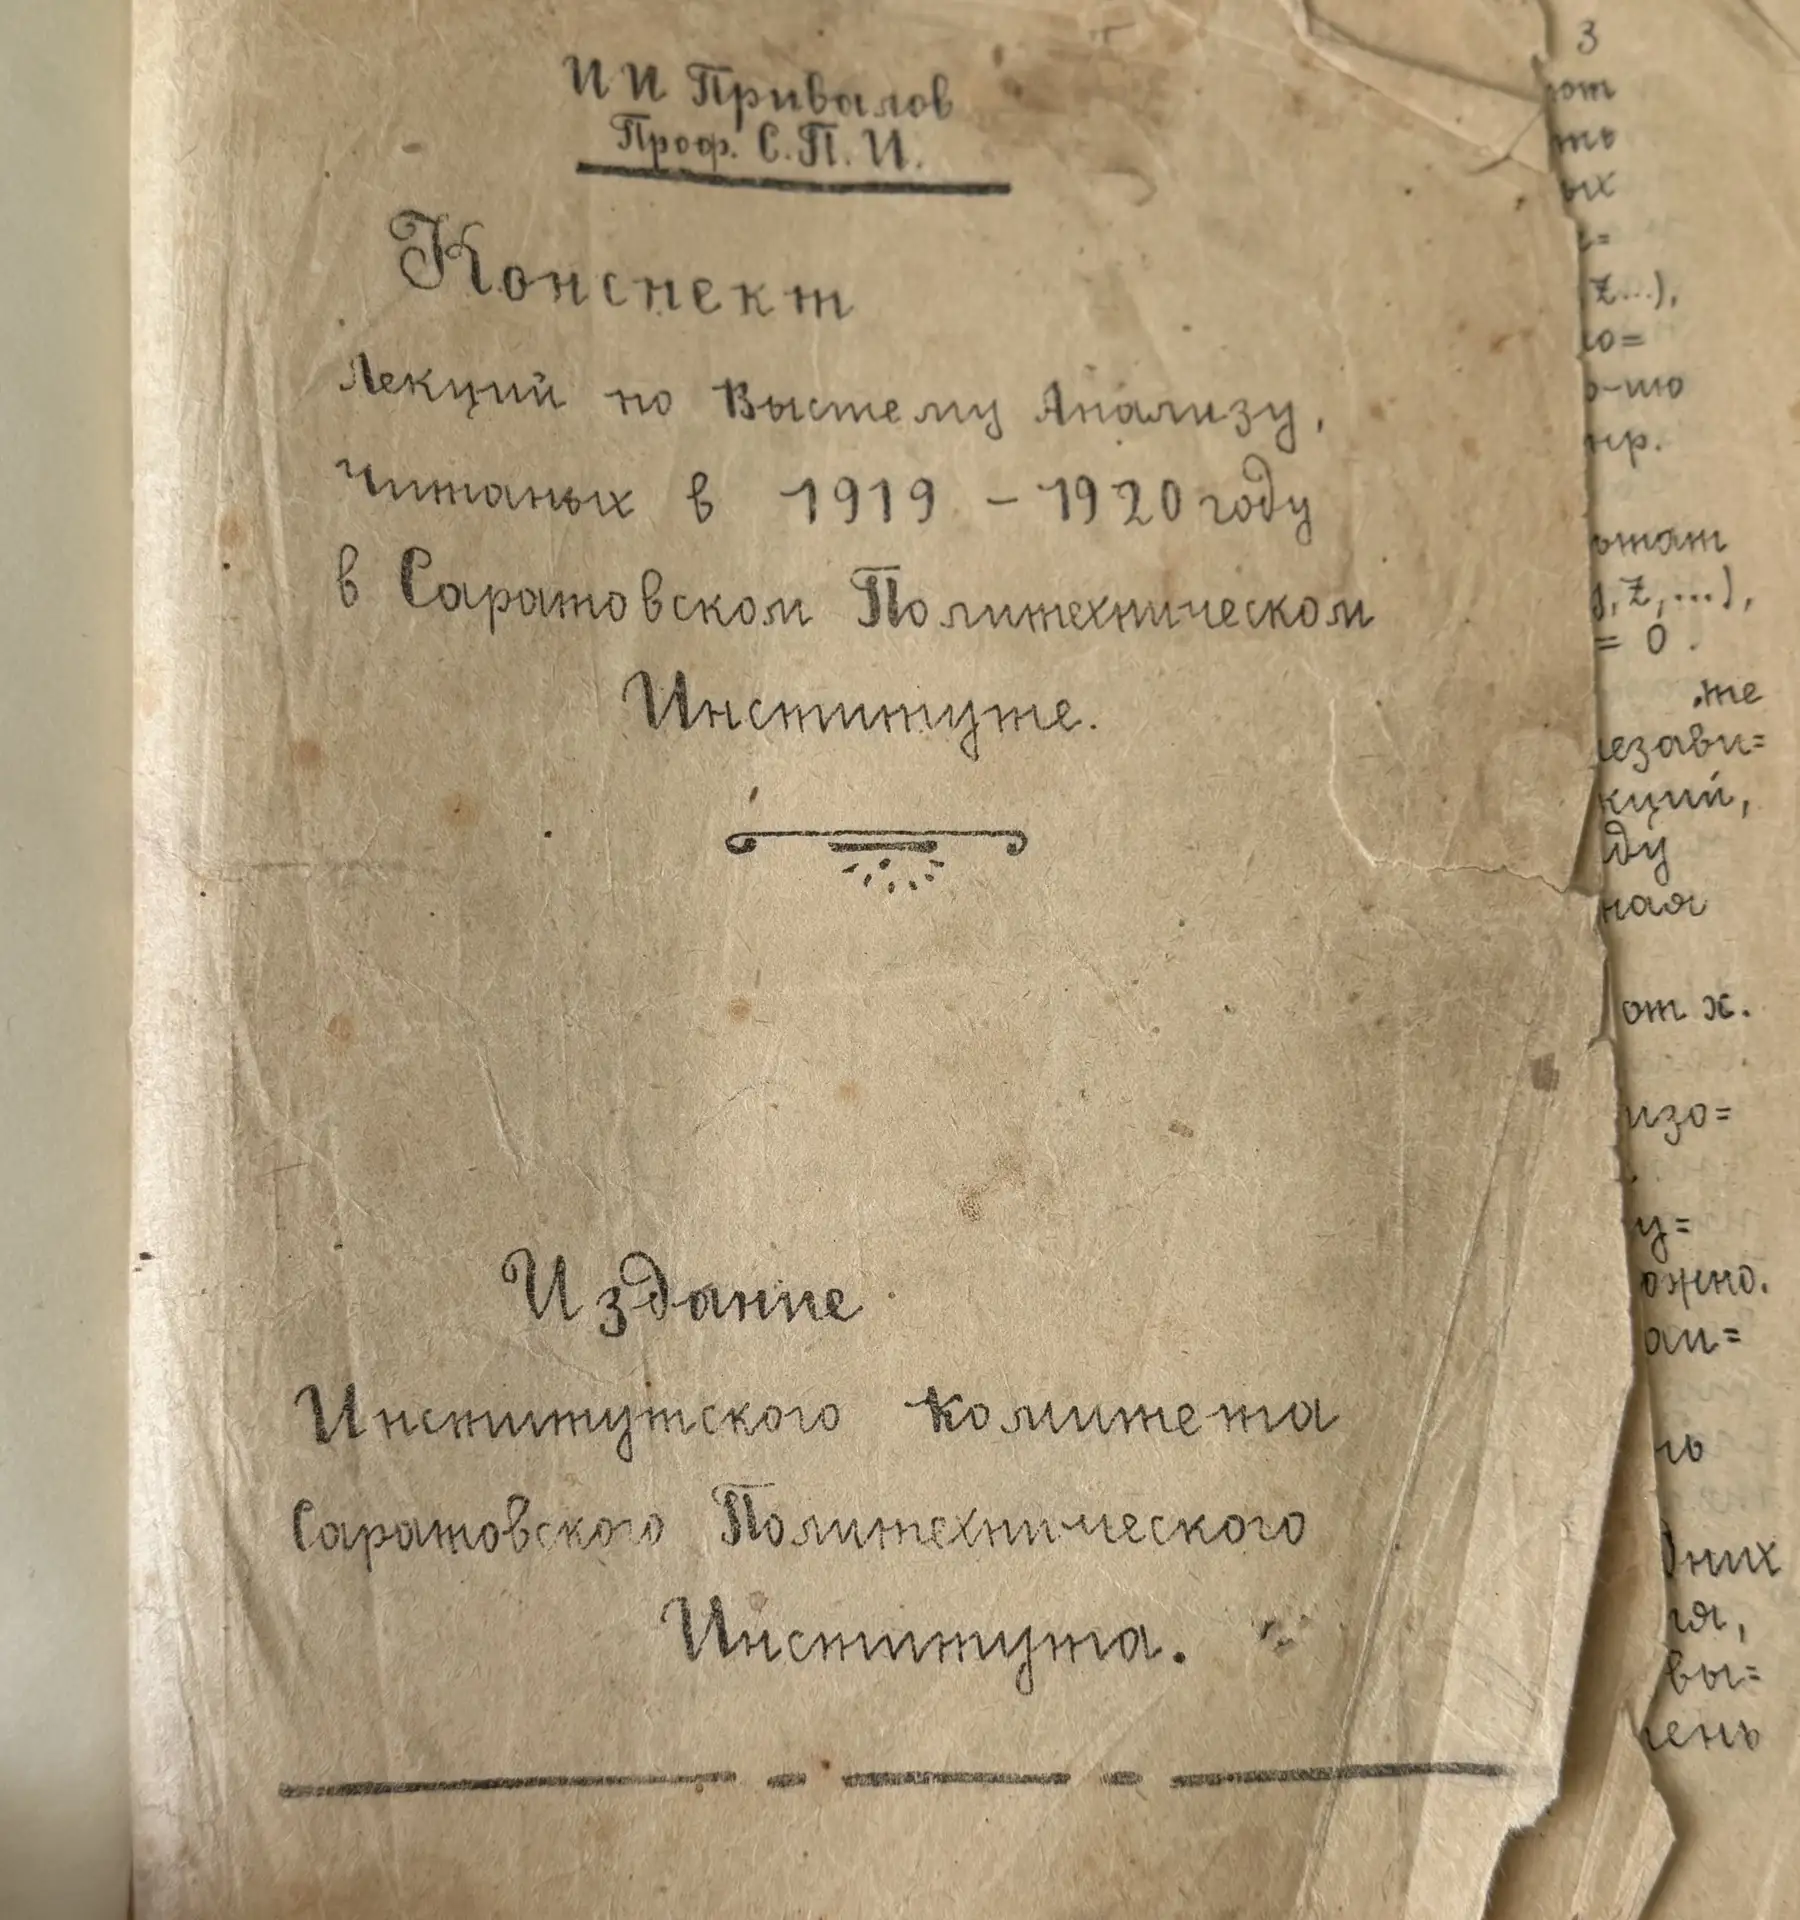 И И Привалов
Проф. С.П.И.
Конспект
Лекций по Высшему Анализу,
Читаных в 1919 – 1920 году
в Саратовском Политехническом
Институте.
Издание
Институтского комитета
Саратовского Политехнического
Института.
3
от
ть
ых
z...),
о=
о-шю
пр.
ьтат
z,...),
= 0.
же
езави=
кций,
ду
ная
от x.
изо=
у=
ожно.
аи=
ь
дних
ся,
вы=
ень